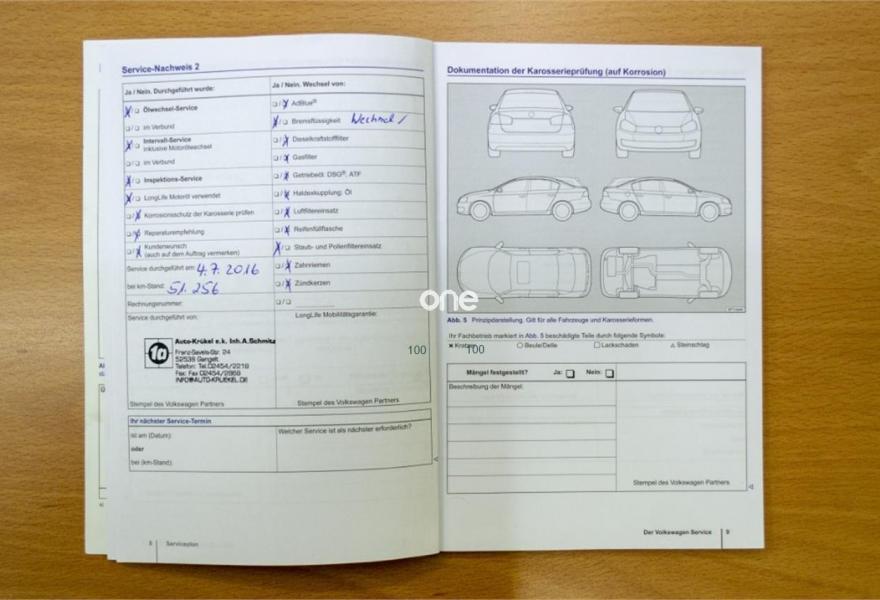 Service-Nachweis 2
Ja / Nein. Durchgeführt wurde:
Ja / Nein. Wechsel von:
Ölwechsel-Service
im Verbund
Intervall-Service
inklusive Motorölwechsel
im Verbund
Inspektions-Service
LongLife Motoröl verwendet
Korrosionsschutz der Karosserie prüfen
Reparaturempfehlung
Kundenwunsch
(auch auf dem Auftrag vermerken)
Service durchgeführt am: 4.7.2016
bei km-Stand: 51.256
Rechnungsnummer:
AdBlue®
Bremsflüssigkeit Wechsel /
Dieselkraftstofffilter
Gasfilter
Getriebeöl: DSG®, ATF
Haldexkupplung: Öl
Luftfiltereinsatz
Reifenfüllflasche
Staub- und Pollenfiltereinsatz
Zahnriemen
Zündkerzen
Service durchgeführt von:
LongLife Mobilitätsgarantie:
1a
Auto-Krükel e.k. Inh.A.Schmitz
Franz-Savels-Str. 24
52538 Gangelt
Telefon: Tel.02454/2218
Fax: Fax 02454/2868
INFO@AUTO-KRUEKEL.DE
Stempel des Volkswagen Partners
Stempel des Volkswagen Partners
Ihr nächster Service-Termin
ist am (Datum):
oder
bei (km-Stand):
Welcher Service ist als nächster erforderlich?
8 Serviceplan
Dokumentation der Karosserieprüfung (auf Korrosion)
one
Abb. 5 Prinzipdarstellung. Gilt für alle Fahrzeuge und Karosserieformen.
Ihr Fachbetrieb markiert in Abb. 5 beschädigte Teile durch folgende Symbole:
Kratzer Beule/Delle Lackschaden Steinschlag
100 100
Mängel festgestellt? Ja: Nein:
Beschreibung der Mängel:
Stempel des Volkswagen Partners
Der Volkswagen Service 9